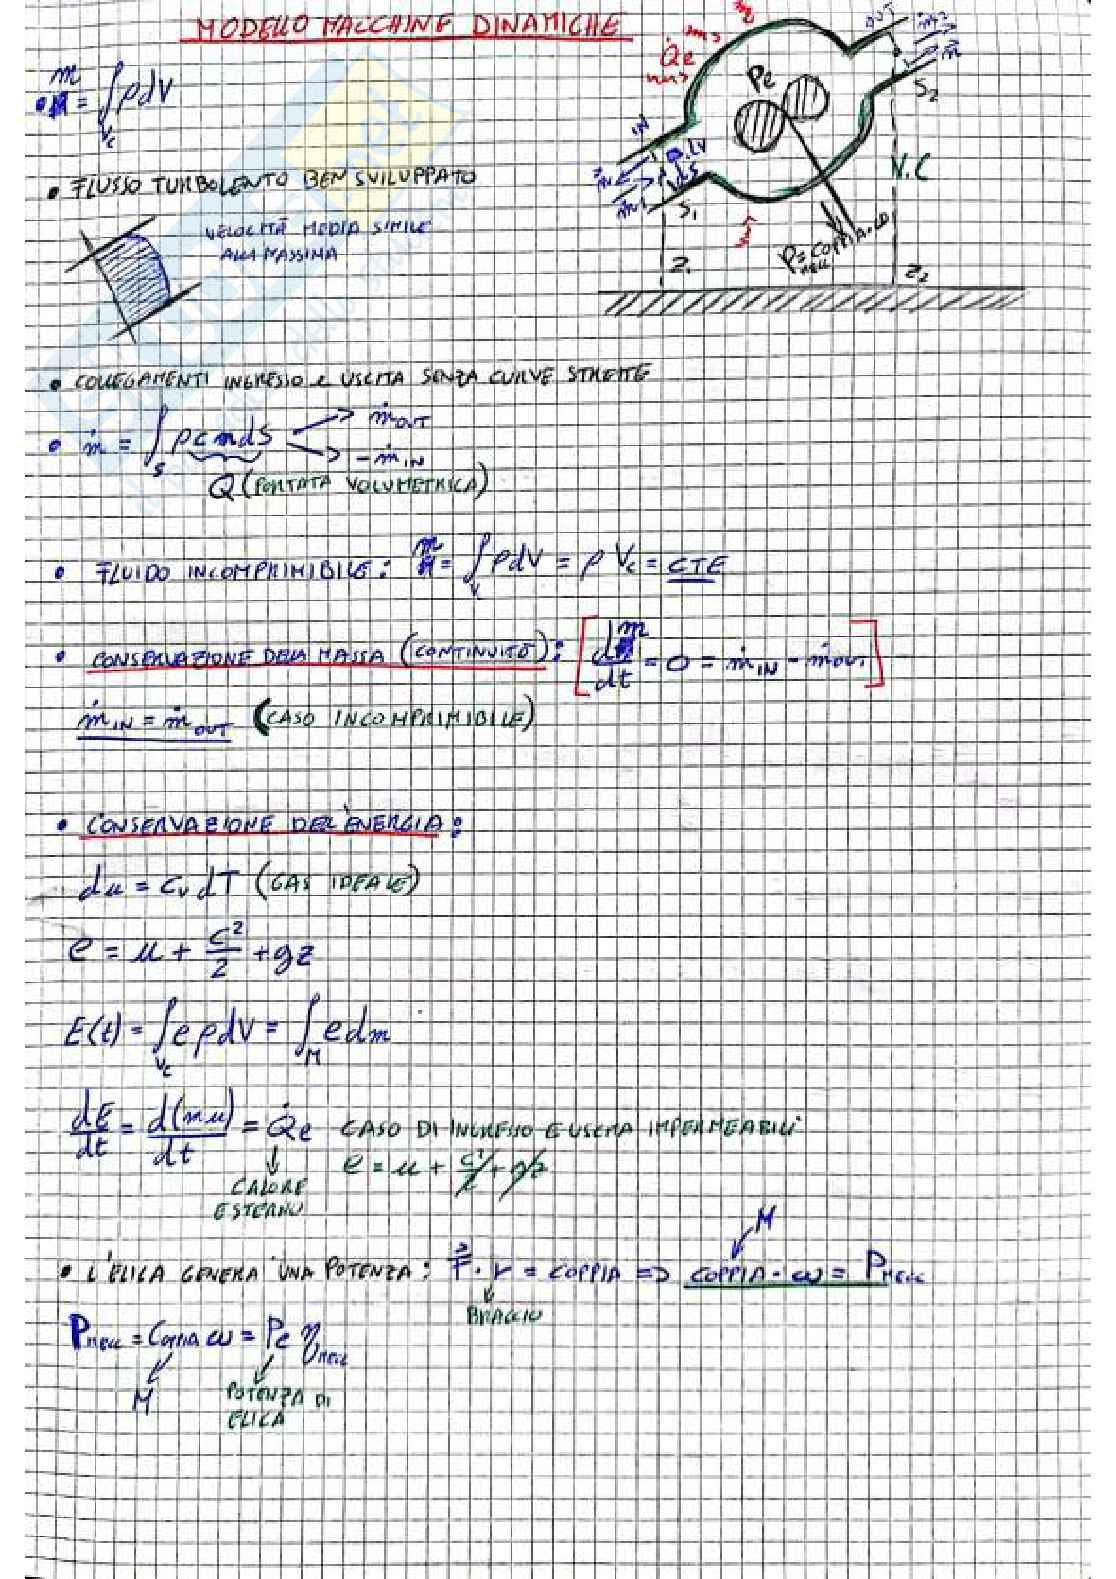 MODELLO MACCHINE DINAMICHE
• m = ∫Vc ρdV
• FLUSSO TURBOLENTO BEN SVILUPPATO
VELOCITÀ MEDIA SIMILE
ALLA MASSIMA
Q̇e
Pe
IN
OUT
S1
S2
V.C
Z1
Z2
• COLLEGAMENTI INGRESSO E USCITA SENZA CURVE STRETTE
• ṁ = ∫S ρ c n dS → ṁOUT
→ -ṁIN
Q (PORTATA VOLUMETRICA)
• FLUIDO INCOMPRIMIBILE: m = ∫V ρdV = ρ Vc = CTE
• CONSERVAZIONE DELLA MASSA (CONTINUITÀ): [dm/dt = 0 = ṁIN - ṁOUT]
ṁIN = ṁOUT (CASO INCOMPRIMIBILE)
• CONSERVAZIONE DELL'ENERGIA:
du = cv dT (GAS IDEALE)
e = u + c²/2 + gz
E(t) = ∫Vc e ρdV = ∫M e dm
dE/dt = d(mu)/dt = Q̇e CASO DI INGRESSO E USCITA IMPERMEABILI
e = u + c²/2 + gz
CALORE
ESTERNO
M
• L'ELICA GENERA UNA POTENZA: F⃗ · r = COPPIA => COPPIA · ω = Pmecc
BRACCIO
Pmecc = Coppia ω = Pe ηmecc
M
POTENZA DI
ELICA